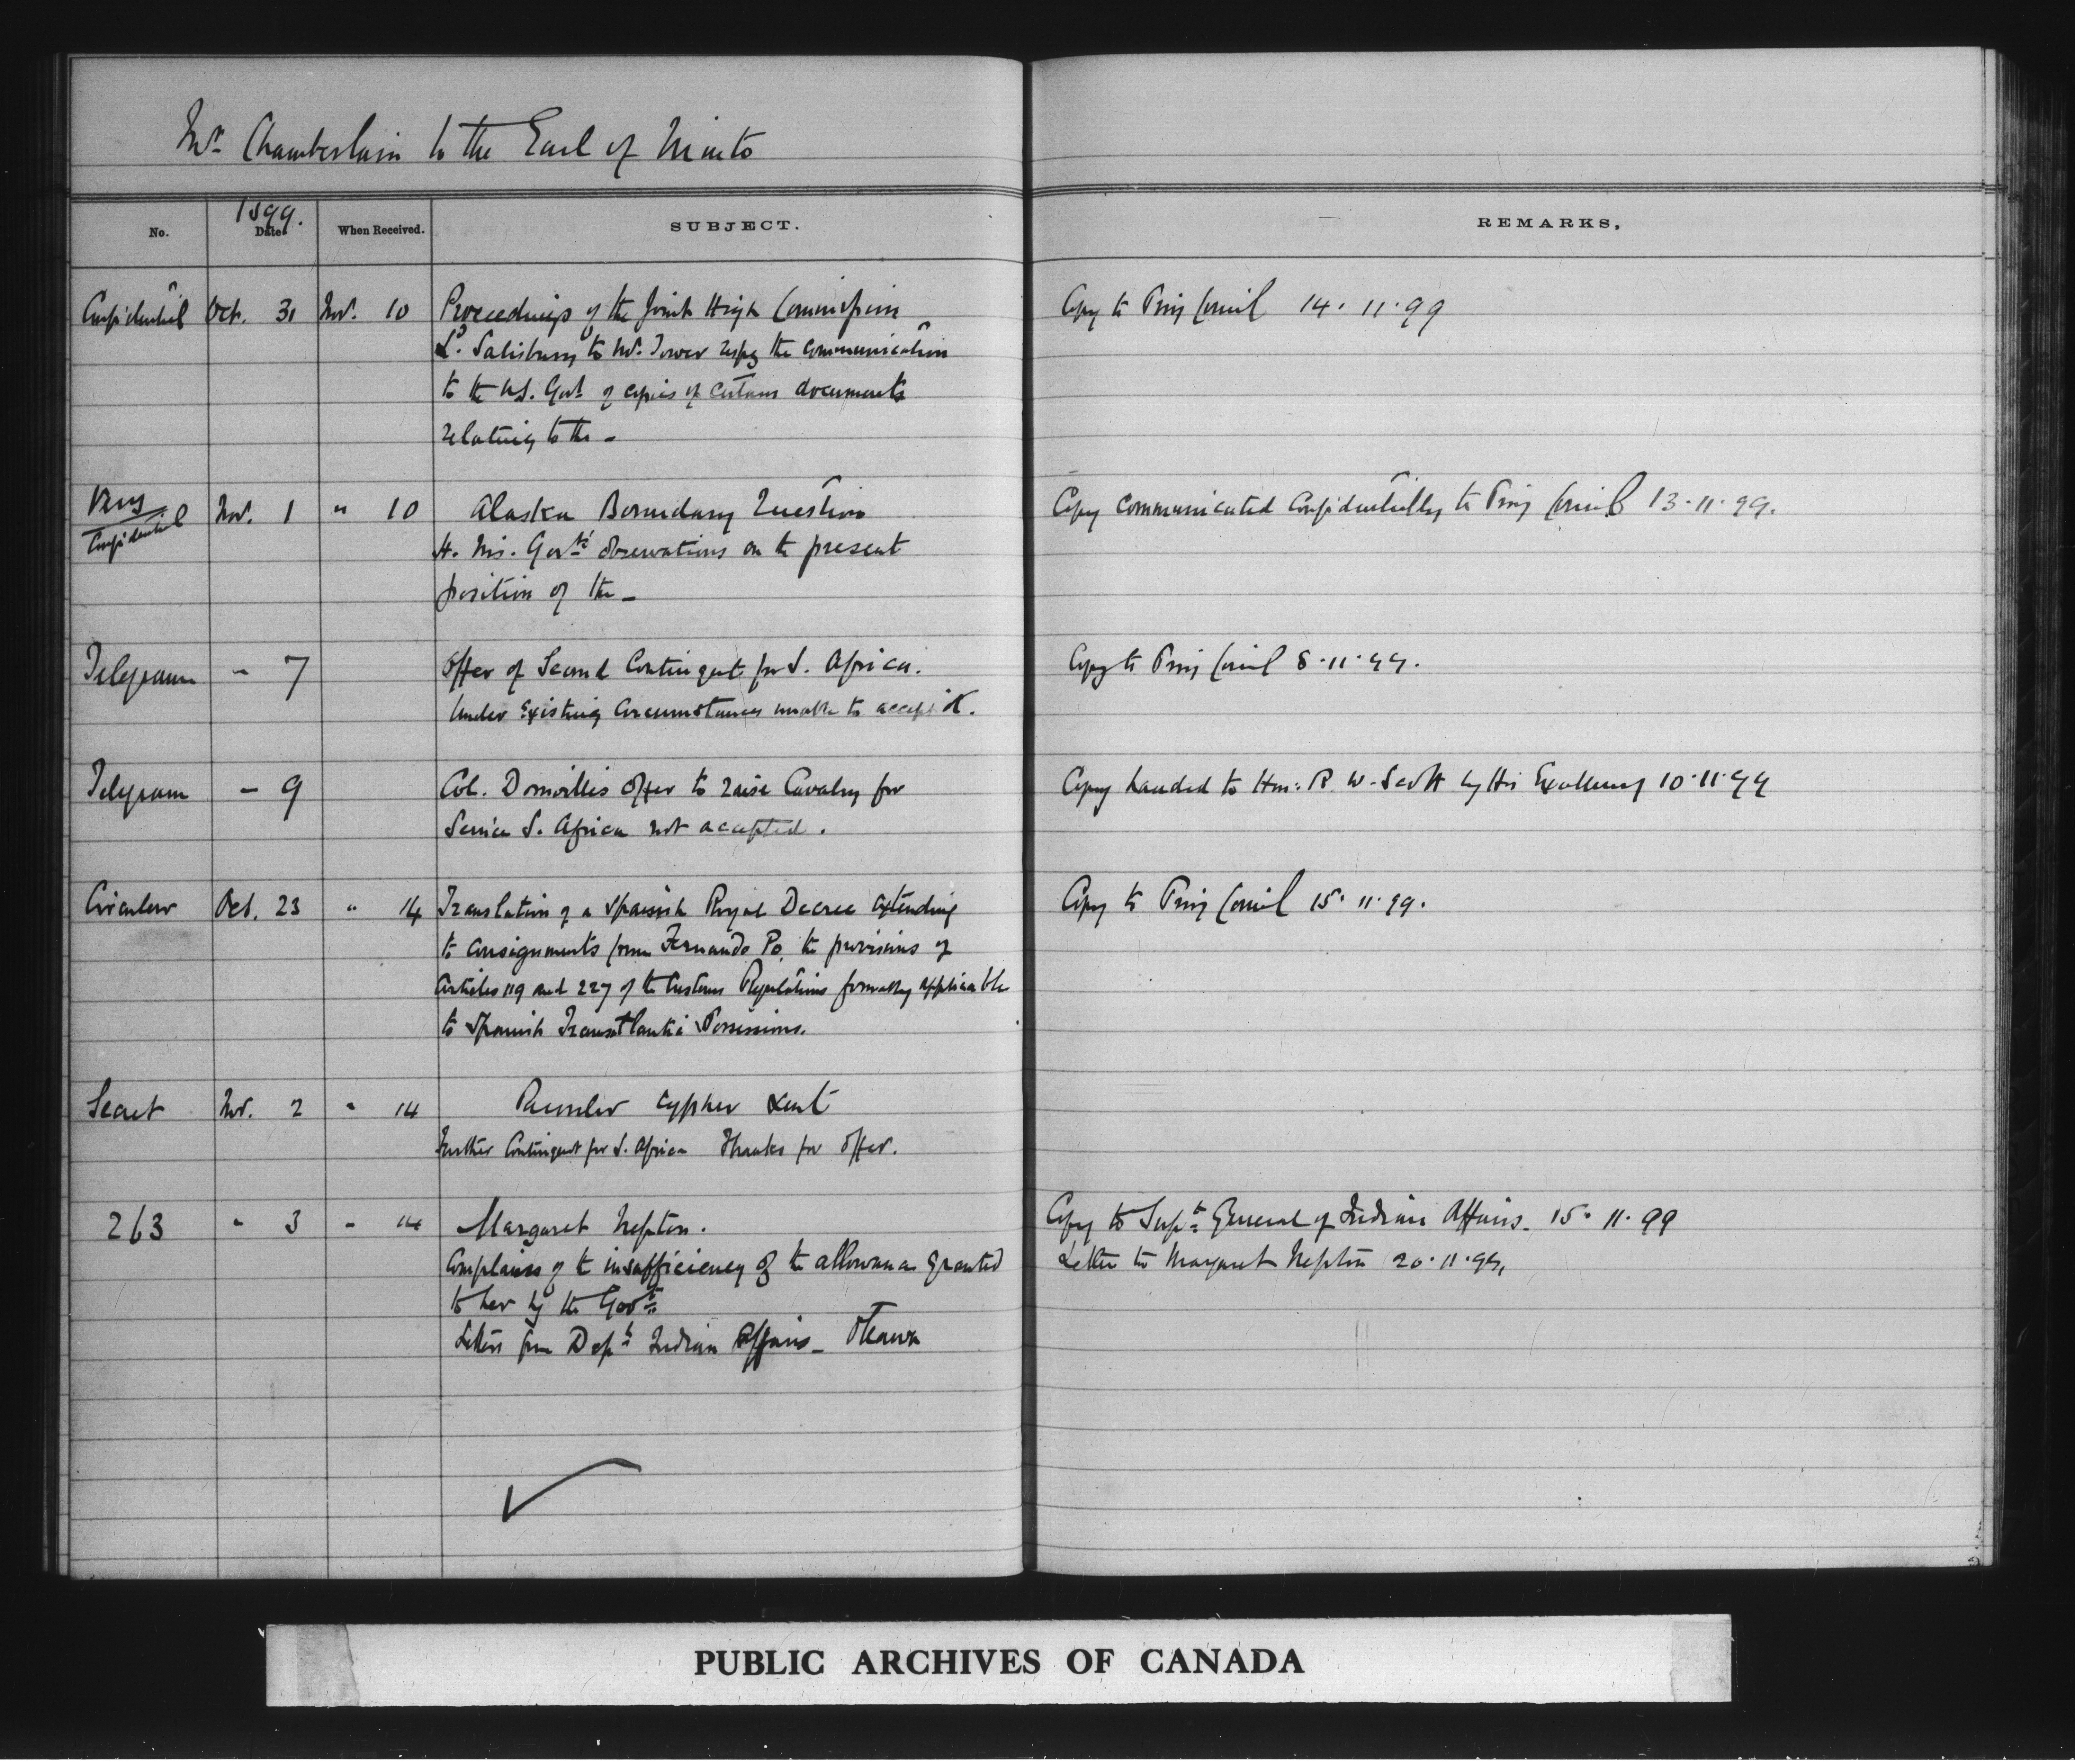 Mr. Chamberlain to the Earl of Minto
No. 1899. Date When Received. SUBJECT. REMARKS.
Confidential Oct. 31 Nov. 10 Proceedings of the Joint High Commission Copy to Privy Council 14.11.99
Ld. Salisbury to Mr. Tower respg the communication
to the U.S. Govt of copies of certain documents
relating to the -
Very Confidential Nov. 1 " 10 Alaska Boundary Question Copy communicated confidentially to Privy Council 13.11.99.
H. M's. Govts' observations on the present
position of the -
Telegram - 7 Offer of Second Contingent for S. Africa. Copy to Privy Council 8.11.99.
Under existing circumstances unable to accept it.
Telegram - 9 Col. Domville's offer to raise Cavalry for Copy handed to Hon: R. W. Scott by His Excellency 10.11.99
Service S. Africa not accepted.
Circular Oct. 23 " 14 Translation of a Spanish Royal Decree extending Copy to Privy Council 15.11.99.
to consignments from Fernando Po, the provisions of
Articles 119 and 227 of the Customs Regulations formerly applicable
to Spanish Transatlantic Possessions.
Secret Nov. 2 " 14 cypher sent
Further Contingent for S. Africa Thanks for offer.
263 " 3 " 14 Margaret Nepton. Copy to Supt. General of Indian Affairs. 15.11.99
Complains of the insufficiency of the allowance granted Letter to Margaret Nepton 20.11.99.
to her by the Govt.
Letters from Dept Indian Affairs - Ottawa
PUBLIC ARCHIVES OF CANADA